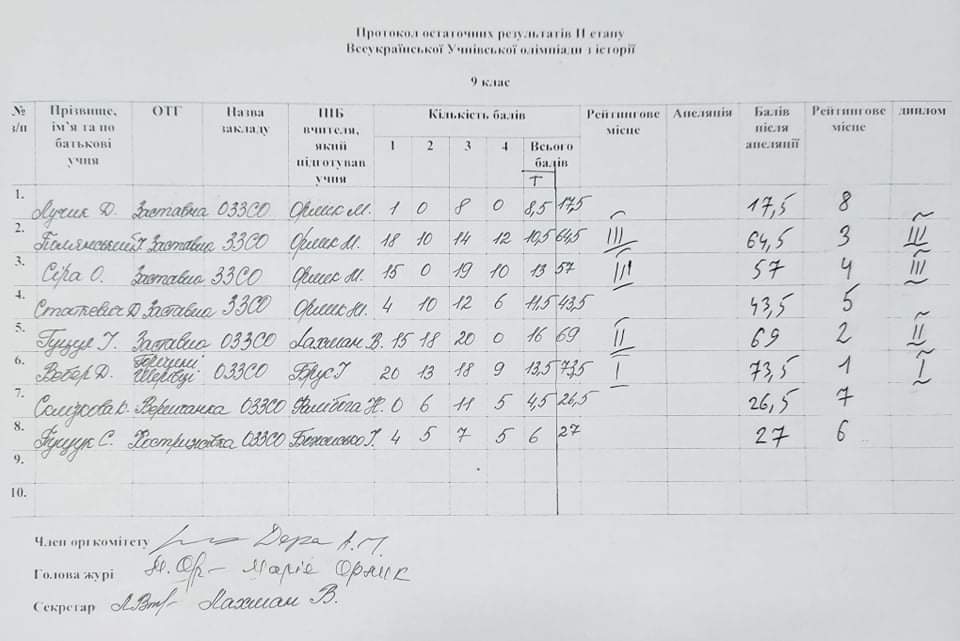 Протокол остаточних результатів ІІ етапу
Всеукраїнської Учнівської олімпіади з історії
9 клас
№ з/п Прізвище, ім'я та по батькові учня ОТГ Назва закладу ПІБ вчителя, який підготував учня Кількість балів 1 2 3 4 Т Всього балів Рейтингове місце Апеляція Балів після апеляції Рейтингове місце диплом
1. Лучик Д. Заставна ОЗЗСО Орлик М. 1 0 8 0 8,5 17,5 17,5 8
2. Заставна ЗЗСО Орлик М. 18 10 14 12 10,5 64,5 III 64,5 3 III
3. Сіра О. Заставна ЗЗСО Орлик М. 15 0 19 10 13 57 III 57 4 III
4. Статкевич Д. Заставна ЗЗСО Орлик М. 4 10 12 6 11,5 43,5 43,5 5
5. Гуцул Т. Заставна ОЗЗСО Лахман В. 15 18 20 0 16 69 II 69 2 II
6. Вобер Д. Горішні Шерівці ОЗЗСО Брус Т 20 13 18 9 13,5 73,5 I 73,5 1 I
7. Веренчанка ОЗЗСО Н. 0 6 11 5 4,5 26,5 26,5 7
8. С. ОЗЗСО 4 5 7 5 6 27 27 6
9.
10.
Член оргкомітету Дера А.П.
Голова журі М. Ор- Марія Орлик
Секретар Лахман В.